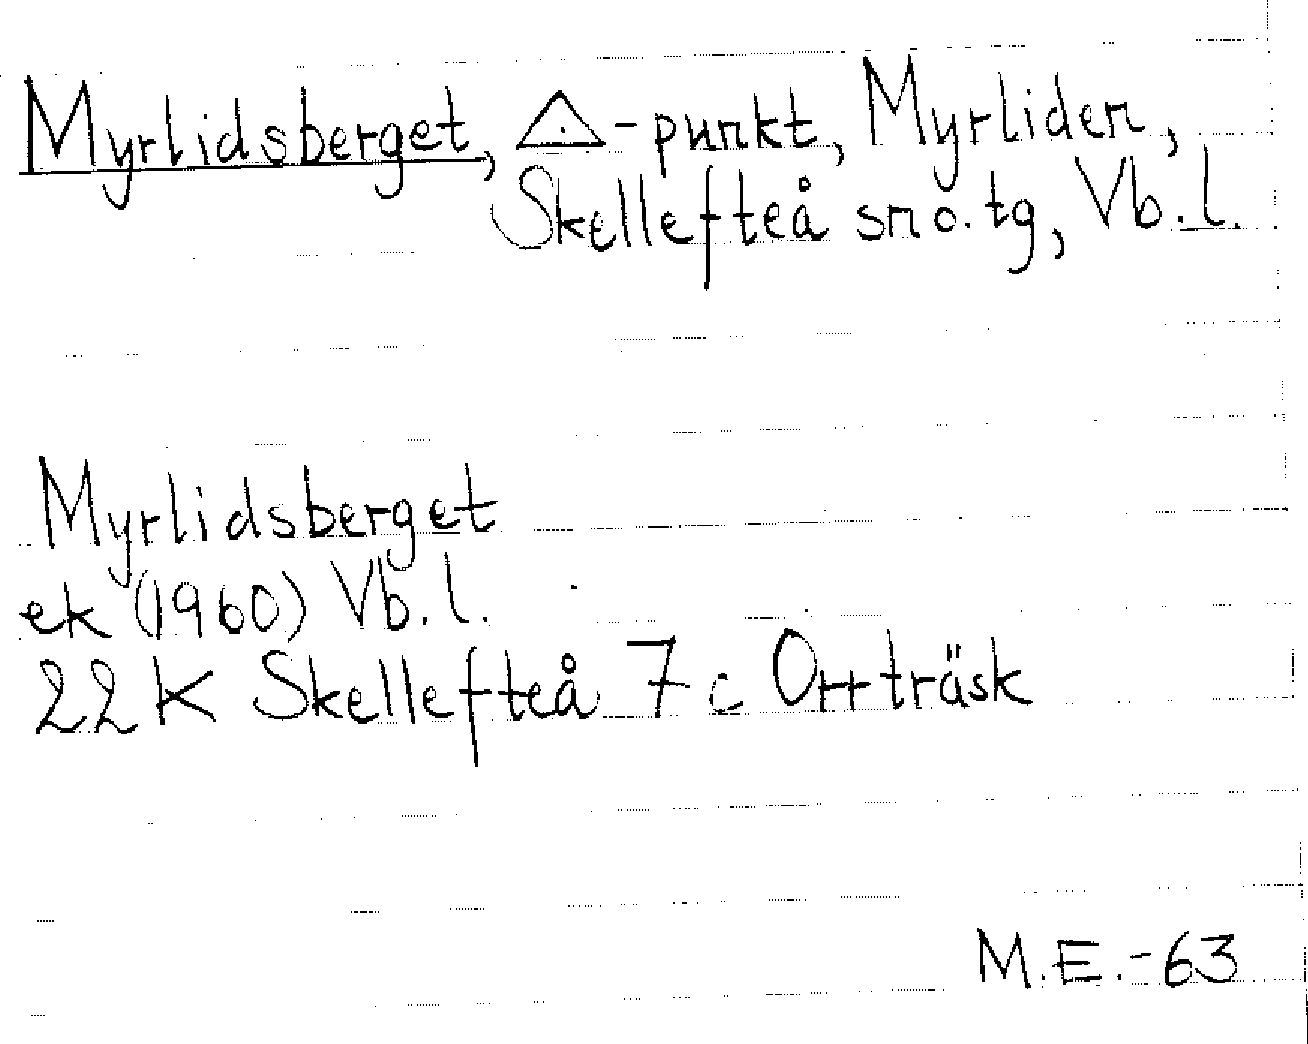 Myrlidsberget, △-punkt, Myrliden,
Skellefteå sn o. tg, Vb. l.
Myrlidsberget
ek (1960) Vb. l.
22 K Skellefteå 7 c Orrträsk
M.E.-63